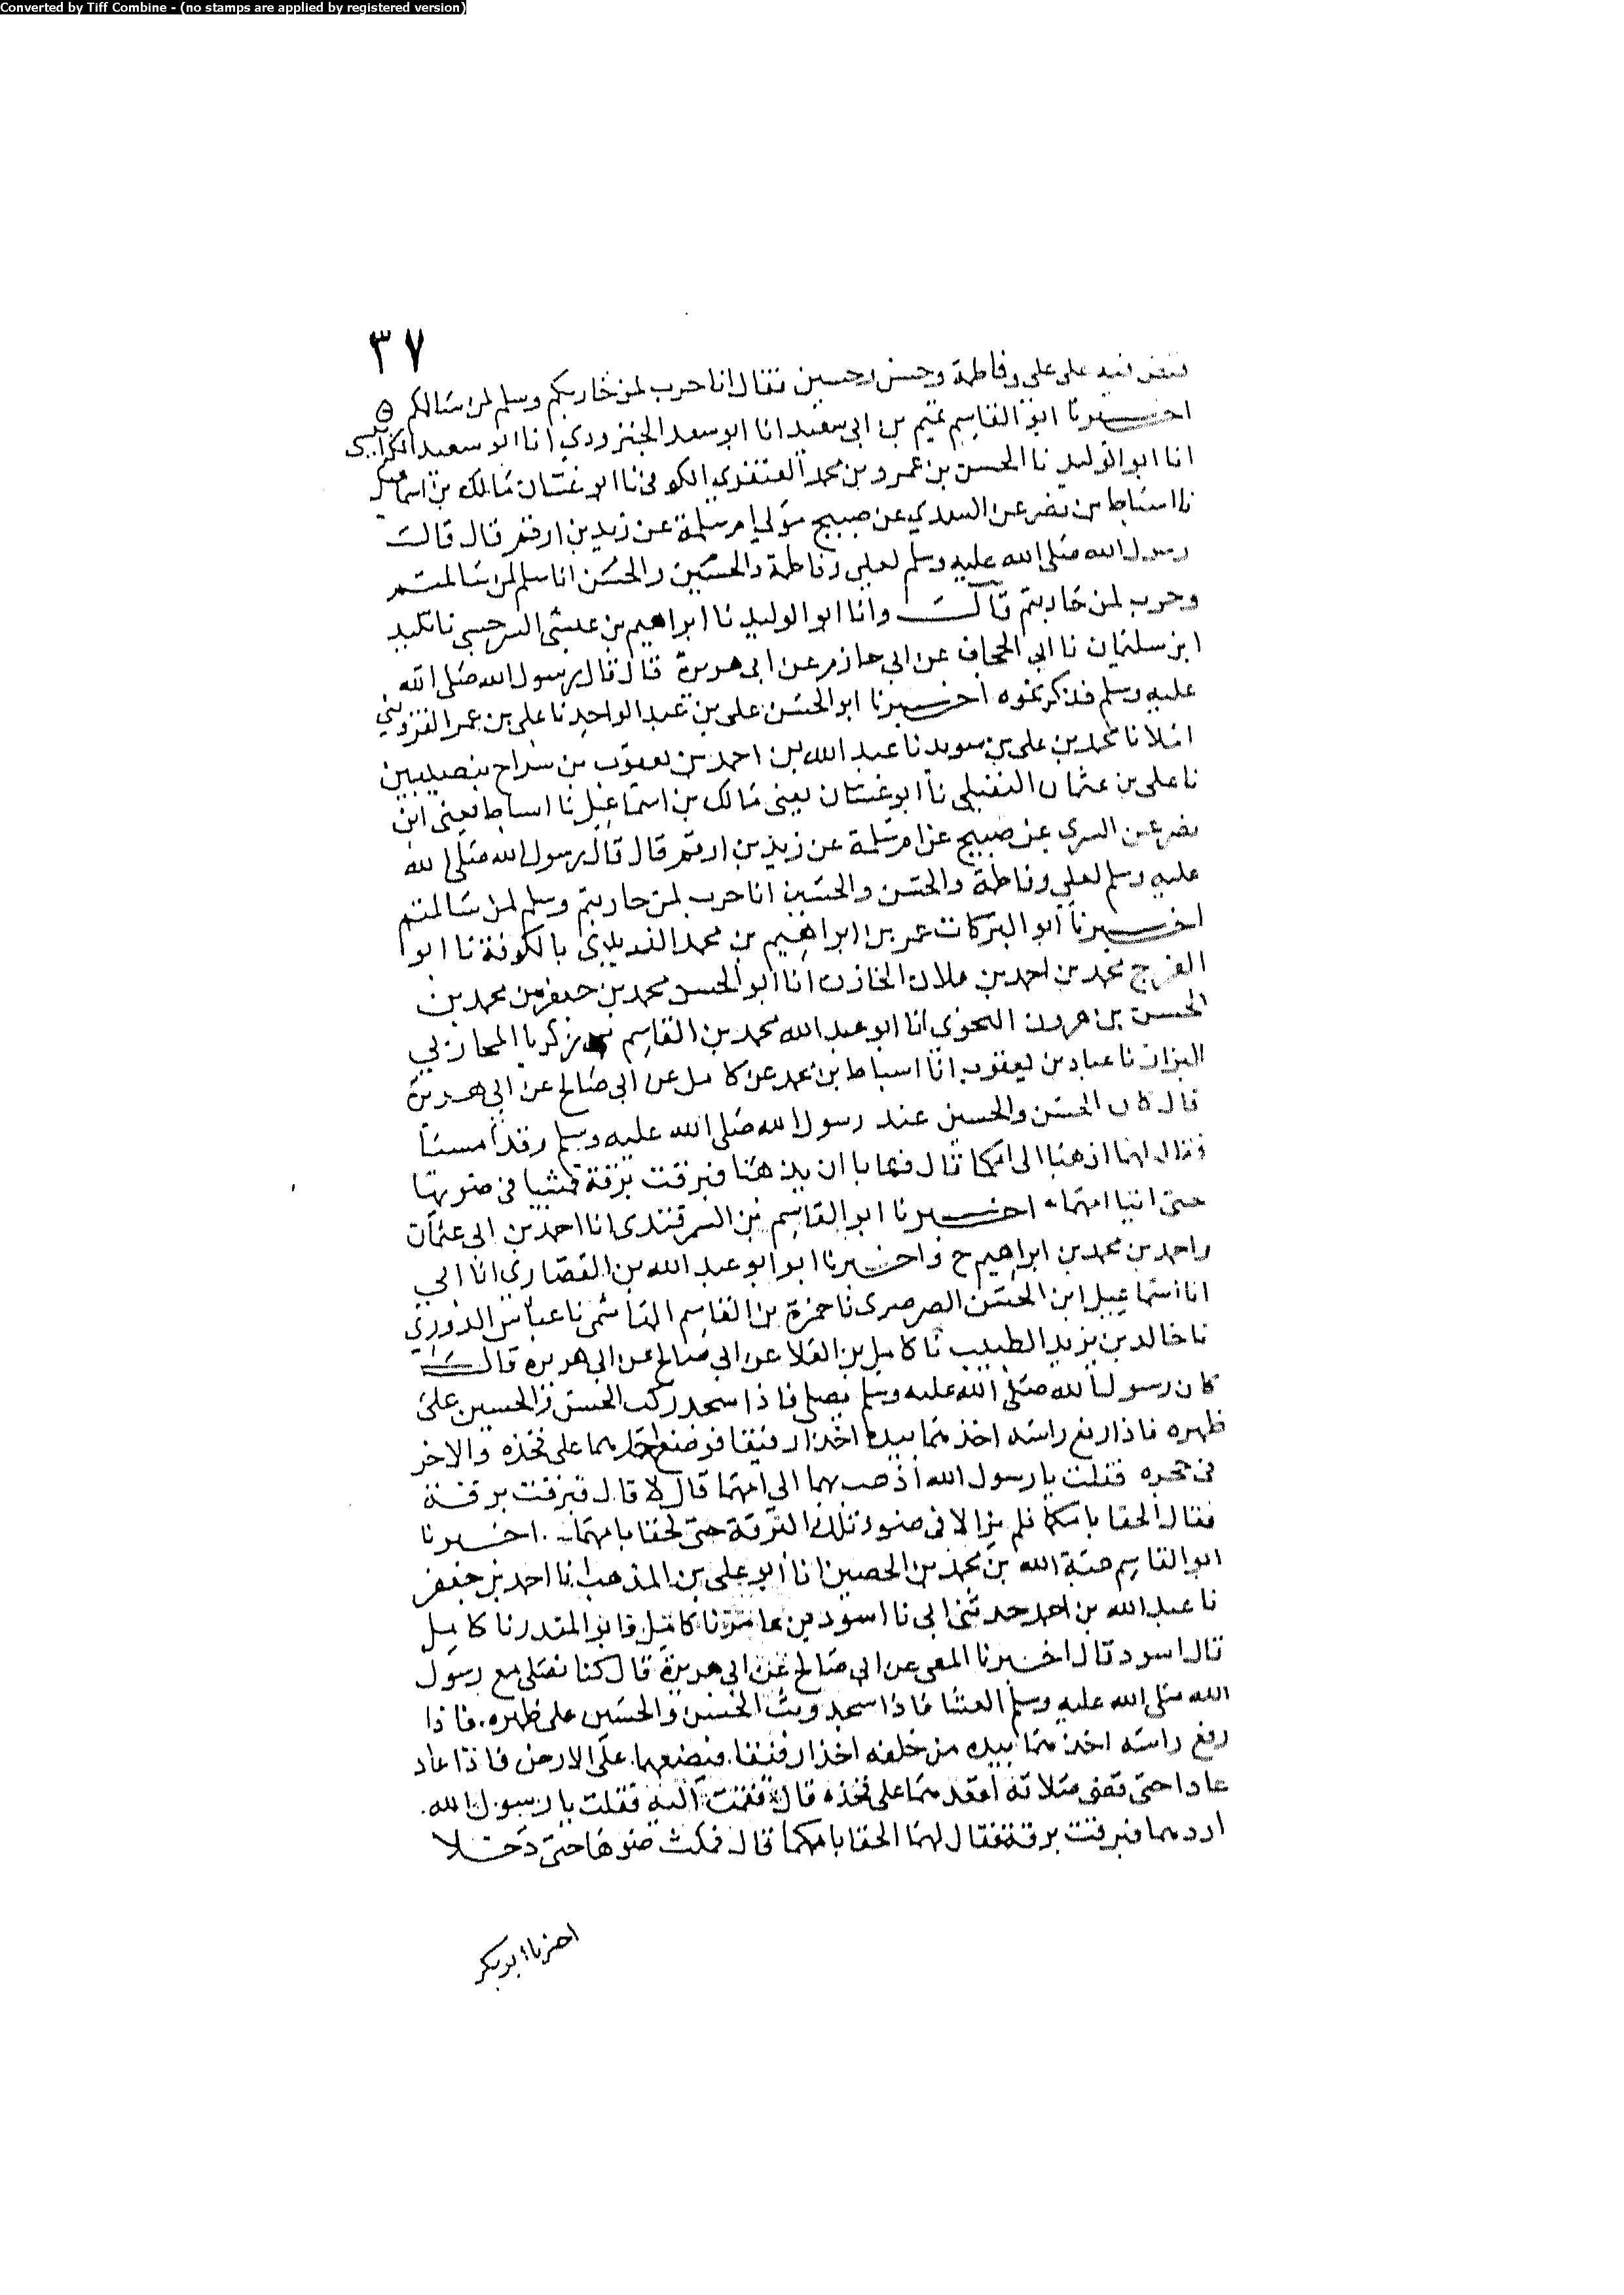 Converted by Tiff Combine - (no stamps are applied by registered version)
٣٧
فيه على علي وفاطمة وحسن وحسين فقال انا حرب لمن حاربكم وسلم لمن سالكم
اخبرنا ابو القاسم تميم بن ابي سعيد انا ابو سعد الجنزرودي انا ابو سعيد الكرابيسى
انا ابو الوليد نا الحسن بن عمرو بن محمد العنقزي الكوفى نا ابو غسان مالك بن اسماعيل
نا اسباط بن نصر عن السدي عن صبيح مولى ام سلمة عن زيد بن ارقم قال قال
رسول الله صلى الله عليه وسلم لعلي وفاطمة والحسين والحسن انا سلم لمن سالمتم
وحرب لمن حاربتم قال وانا ابو الوليد نا ابراهيم بن عيسى السرخسي نا تليد
ابن سليمان نا ابي الحجاف عن ابي حازم عن ابى هريرة قال قال رسول الله صلى الله
عليه وسلم فذكر نحوه اخبرنا ابو الحسن على بن عبد الواحد نا على بن عمر القزوينى
املا نا محمد بن على بن سويد نا عبد الله بن احمد بن يعقوب بن سراح بنصيبين
نا على بن عثمان النفيلي نا ابو غسان يعنى مالك بن اسماعيل نا اسباط يعنى ابن
نصر عن السري عن صبيح عن ام سلمة عن زيد بن ارقم قال قال رسول الله صلى الله
عليه وسلم لعلي وفاطمة والحسن والحسين انا حرب لمن حاربتم وسلم لمن سالمتم
اخبرنا ابو البركات عمر بن ابراهيم بن محمد الزيدي بالكوفة نا ابو
الفرج محمد بن احمد بن علان الخازن انا ابو الحسن محمد بن جعفر بن محمد بن
الحسن بن هرون النحوي انا ابو عبد الله محمد بن القاسم بن زكريا المحاربي
البزاز نا عباد بن يعقوب انا اسباط بن محمد عن كامل عن ابي صالح عن ابي هريرة
قال كان الحسن والحسين عند رسول الله صلى الله عليه وسلم وقد امسيا
فقال لهما اذهبا الى امكما قال فهابا ان يذهبا فبرقت برقة فمشيا في ضوءها
حتى اتيا امهما اخبرنا ابو القاسم بن السمرقندى انا احمد بن ابى عثمان
واحمد بن محمد بن ابراهيم ح واخبرنا ابو ابو عبد الله بن القصاري انا ابي
انا اسماعيل ابن الحسن الصرصرى نا حمزة بن القاسم الهاشمى نا عباس الدوري
نا خالد بن يزيد الطبيب نا كامل بن العلا عن ابى صالح عن ابى هريره قال
كان رسول الله صلى الله عليه وسلم يصلى فاذا سجد ركب الحسن والحسين على
ظهره فاذا رفع راسه اخذهما بيده اخذا رفيقا فوضع احدهما على فخذه والاخر
فى حجره فقلت يا رسول الله اذهب بهما الى امهما قال لا قال فبرقت برقة
فقال الحقا بامكما فلم يزالا فى ضوء تلك البرقة حتى لحقا بامهما اخبرنا
ابو القاسم هبة الله بن محمد بن الحصين انا ابو على بن المذهب انا احمد بن جعفر
نا عبد الله بن احمد حدثنى ابي نا اسود بن عامر نا كامل وابو المنذر نا كامل
قال اسود قال اخبرنا المعى عن ابى صالح عن ابى هريرة قال كنا نصلى مع رسول
الله صلى الله عليه وسلم العشا فاذا سجد وثب الحسن والحسين على ظهره فاذا
رفع راسه اخذهما بيده من خلفه اخذا رفيقا فيضعهما على الارض فاذا عاد
عادا حتى قضى صلاته اقعدهما على فخذه قال فقمت اليه فقلت يا رسول الله
اردهما فبرقت برقة فقال لهما الحقا بامكما قال فمكث ضوءها حتى دخلا
اخبرنا ابو بكر